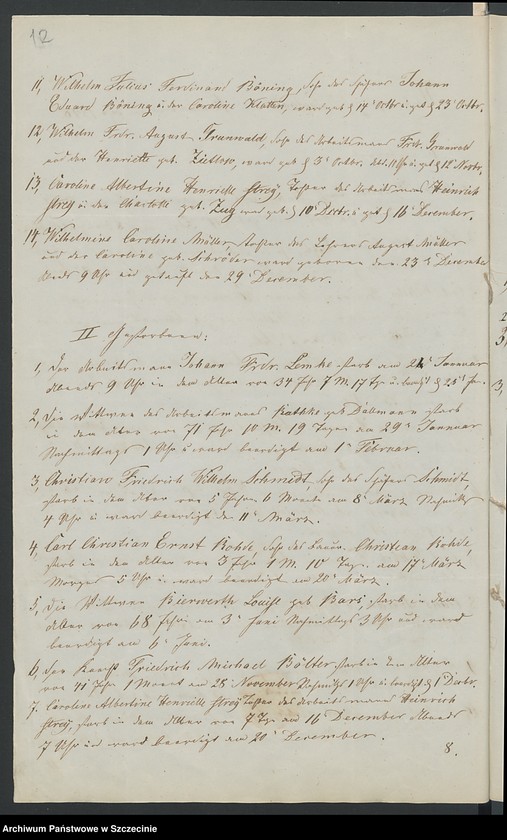 12
11, Wilhelm Julius Ferdinand Böning, Sohn des Johann
Eduard Böning u. der Caroline Klatten, ward geb. d 14 Octbr u. get. d 23 Octbr.
12, Wilhelm Frdr. August Grunwald, Sohn des Arbeitsmans Frdr. Grunwald
und der Henriette geb. Zietlow, ward geb. d 3 Octbr. u get d 12 Novbr.
13, Caroline Albertine Henriette Strey, Tochter des Arbeitsmans Heinrich
Strey u. der Charlotte geb. ward geb. d 10 Decbr. u get d 16 December.
14, Wilhelmine Caroline Müller, Tochter des Lehrers August Müller
und der Caroline geb. Schröder ward geboren den 23 December
Abends 9 Uhr und getauft den 29 December.
II Gestorben:
1, Der Arbeitsmann Johann Frdr. Lemke starb am 21 Januar
Abends 9 Uhr in dem Alter von 34 Jhr 7 M. 17 Tge u. d 25 Jan.
2, Die Wittwe des Arbeitsmans Kathke geb Dallmann starb
in dem Alter von 71 Jhr 10 M. 19 Tagen am 29 Januar
Nachmittags 1 Uhr u ward beerdigt am 1 Februar.
3, Christian Friedrich Wilhelm Schmidt, Sohn des Schmidt,
starb in dem Alter von 5 Jahren 6 Monat am 8 März
4 Uhr u ward beerdigt den 11 März.
4, Carl Christian Ernst Rohde, Sohn des Bauer Christian Rohde,
starb in dem Alter von 3 Jhr 1 M. 10 Tage. am 17 März
Morgens 5 Uhr u. ward beerdigt am 20 März.
5, Die Wittwe Bierwerth Louise geb Bars, starb in dem
Alter von 68 Jahren am 3 Juni Nachmittags 3 Uhr und ward
beerdigt am 6 Juni.
6, Der Friedrich Michael Bölter starb in dem Alter
von 71 Jhr 1 Monat am 28 November 1 Uhr u. beerdigt d 1 Decbr.
7, Caroline Albertine Henriette Strey Tochter des Arbeitsmann Heinrich
Strey, starb in dem Alter von 7 Tge am 16 December Abends
7 Uhr und ward beerdigt am 20 December.
8.
Archiwum Państwowe w Szczecinie